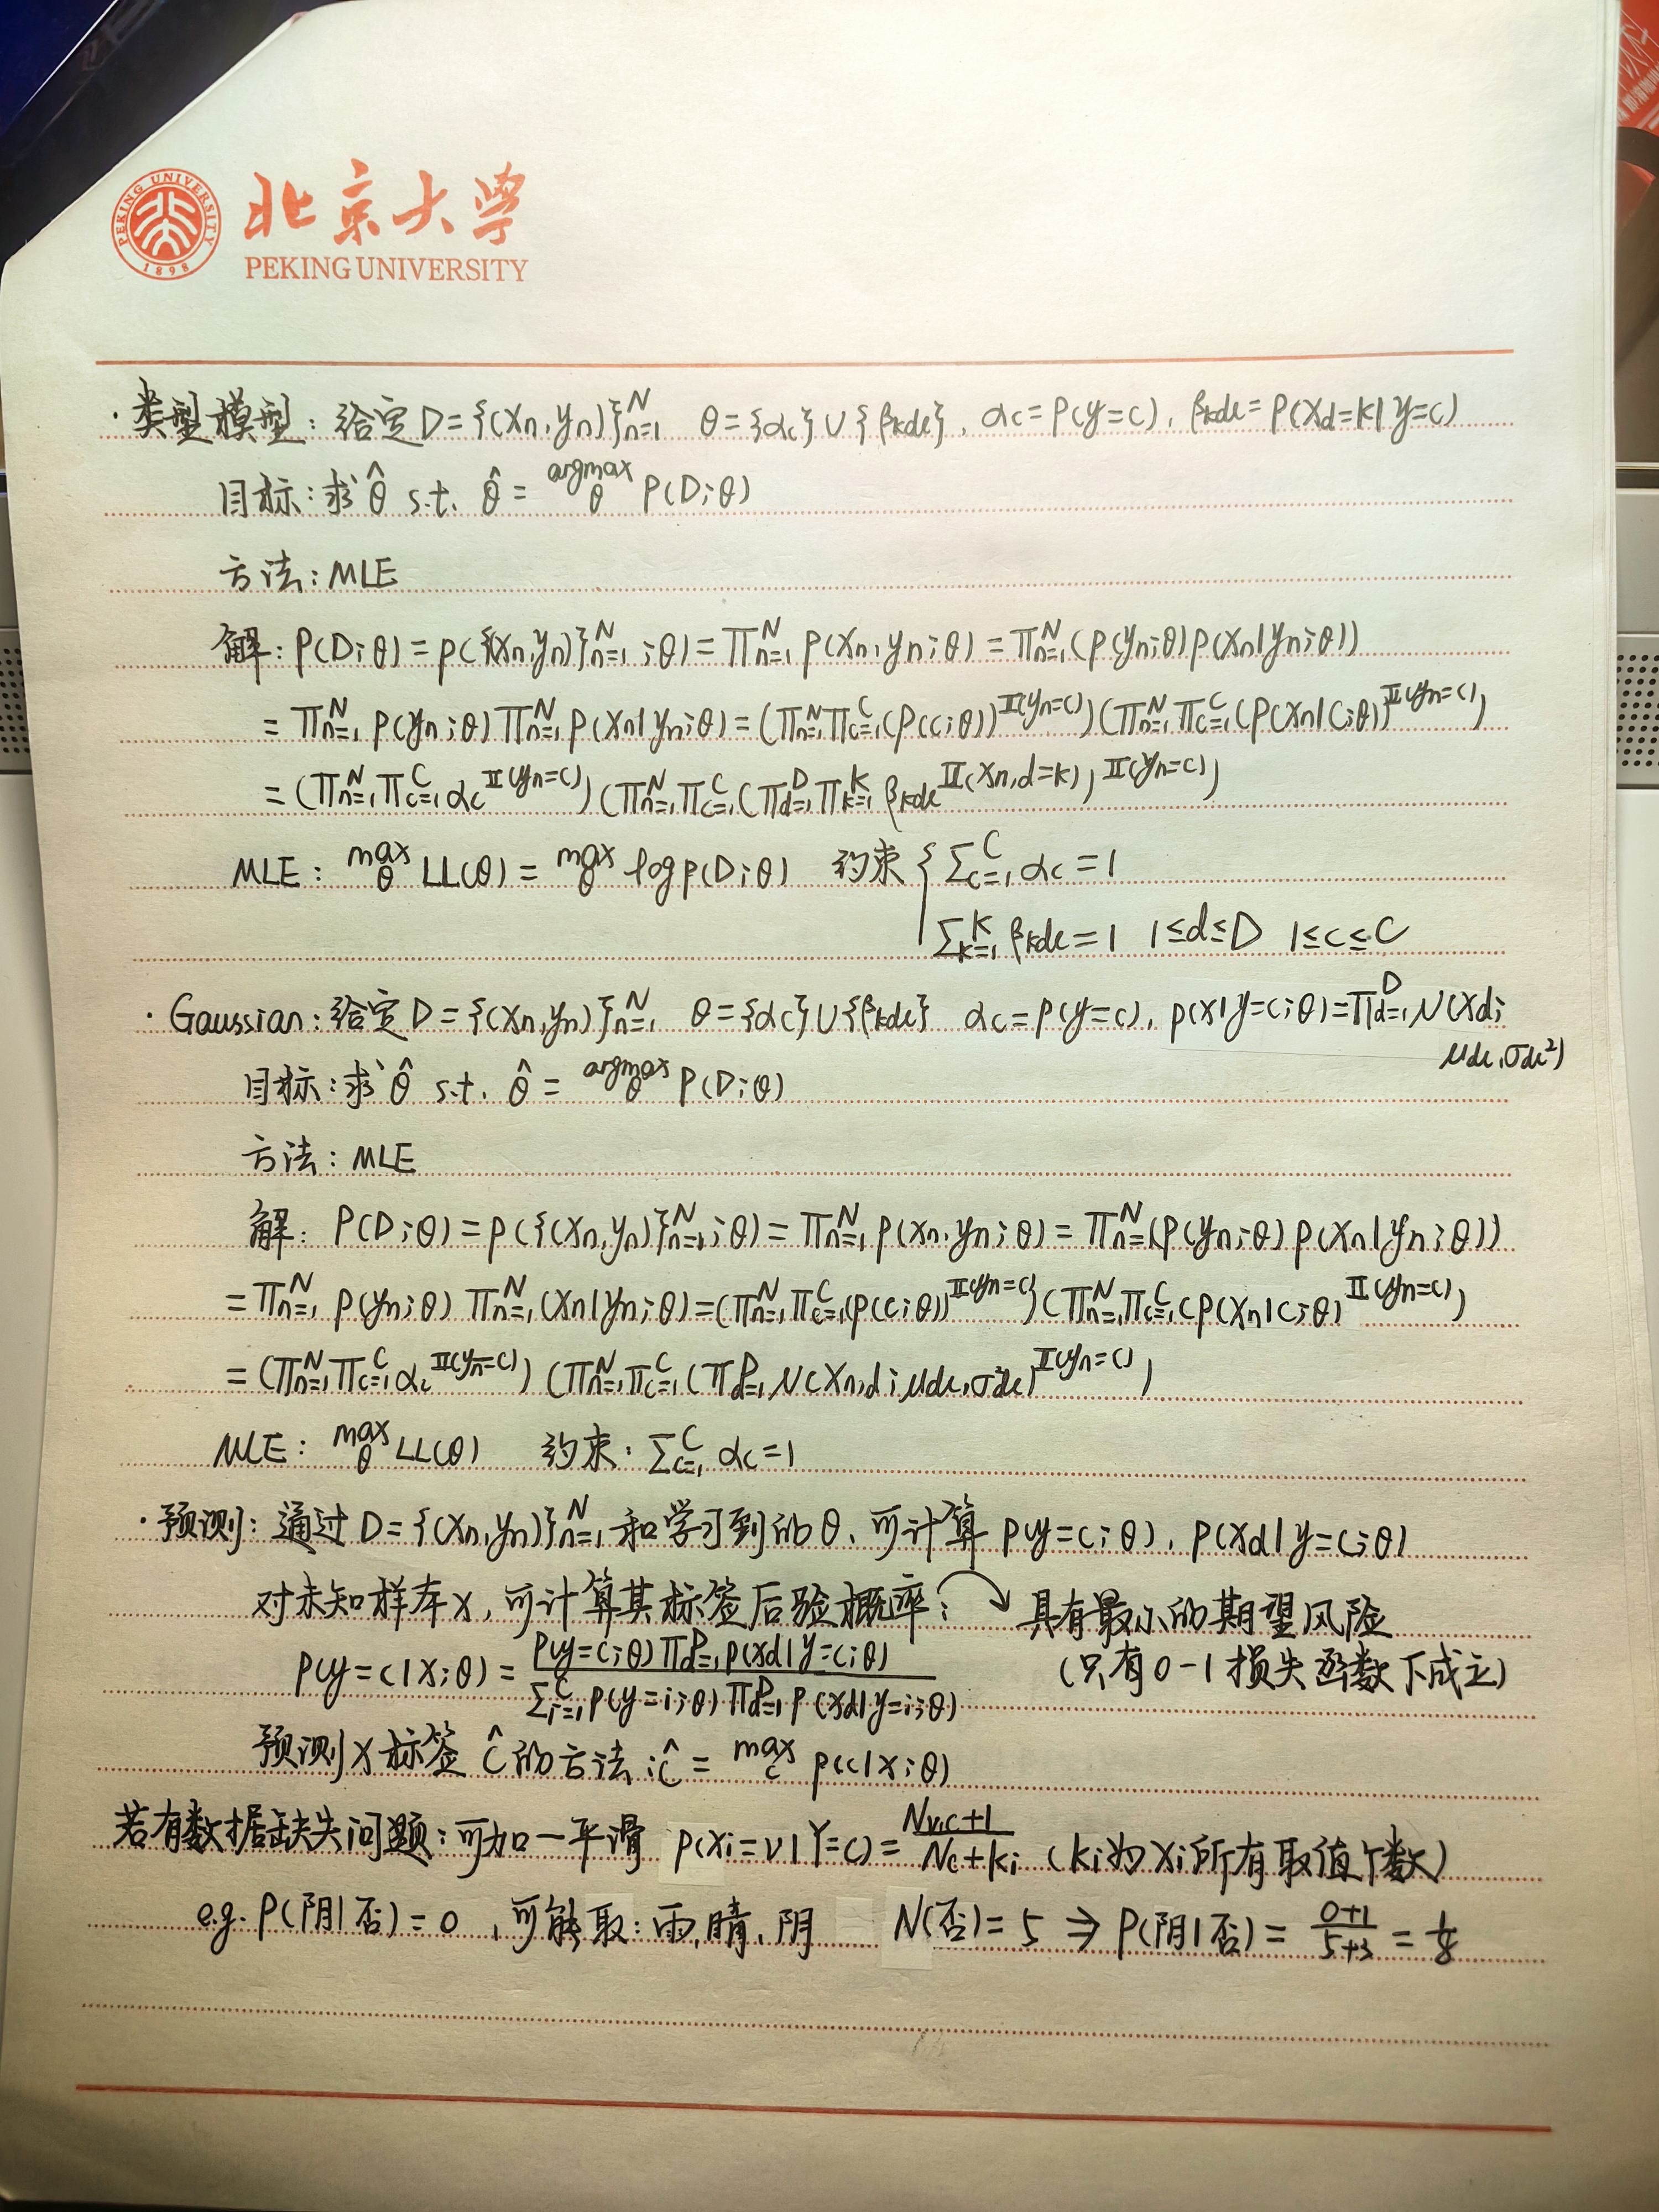 北京大学
PEKING UNIVERSITY
PEKING UNIVERSITY
1898
·类型模型：给定D={(xn,yn)}_{n=1}^N θ={αc}∪{βkdc}, αc=P(y=c), βkdc=P(xd=k|y=c)
目标：求θ̂ s.t. θ̂ = argmax_θ P(D;θ)
方法：MLE
解：P(D;θ)=p({(xn,yn)}_{n=1}^N;θ)=∏_{n=1}^N p(xn,yn;θ)=∏_{n=1}^N(p(yn;θ)p(xn|yn;θ))
=∏_{n=1}^N p(yn;θ)∏_{n=1}^N p(xn|yn;θ)=(∏_{n=1}^N∏_{c=1}^C(P(c;θ))^{𝕀(yn=c)})(∏_{n=1}^N∏_{c=1}^C(P(xn|c;θ))^{𝕀(yn=c)})
=(∏_{n=1}^N∏_{c=1}^C αc^{𝕀(yn=c)})(∏_{n=1}^N∏_{c=1}^C(∏_{d=1}^D∏_{k=1}^K βkdc^{𝕀(xn,d=k)})^{𝕀(yn=c)})
MLE：max_θ LL(θ)=max_θ log p(D;θ) 约束{∑_{c=1}^C αc=1
∑_{k=1}^K βkdc=1 1≤d≤D 1≤c≤C
·Gaussian：给定D={(xn,yn)}_{n=1}^N θ={αc}∪{βkdc} αc=p(y=c), p(x|y=c;θ)=∏_{d=1}^D N(xd;
μdc,σdc²)
目标：求θ̂ s.t. θ̂ = argmax_θ P(D;θ)
方法：MLE
解：P(D;θ)=p({(xn,yn)}_{n=1}^N;θ)=∏_{n=1}^N p(xn,yn;θ)=∏_{n=1}^N(p(yn;θ)p(xn|yn;θ))
=∏_{n=1}^N p(yn;θ)∏_{n=1}^N(xn|yn;θ)=(∏_{n=1}^N∏_{c=1}^C(p(c;θ))^{𝕀(yn=c)})(∏_{n=1}^N∏_{c=1}^C(p(xn|c;θ)^{𝕀(yn=c)})
=(∏_{n=1}^N∏_{c=1}^C αc^{𝕀(yn=c)})(∏_{n=1}^N∏_{c=1}^C(∏_{d=1}^D N(xn,d;μdc,σ²dc)^{𝕀(yn=c)})
MLE：max_θ LL(θ) 约束：∑_{c=1}^C αc=1
·预测：通过D={(xn,yn)}_{n=1}^N和学习到的θ、可计算p(y=c;θ), p(xd|y=c;θ)
对未知样本x，可计算其标签后验概率： 具有最小的期望风险
p(y=c|x;θ)=\frac{p(y=c;θ)∏_{d=1}^D p(xd|y=c;θ)}{∑_{i=1}^C p(y=i;θ)∏_{d=1}^D p(xd|y=i;θ)} (只有0-1损失函数下成立)
预测x标签ĉ的方法：ĉ=max_c p(c|x;θ)
若有数据缺失问题：可加一平滑 p(xi=v|Y=c)=\frac{Nv,c+1}{Nc+ki} (ki为xi所有取值个数)
e.g. P(阴|否)=0，可能取：雨,晴,阴 N(否)=5 ⇒ P(阴|否)=\frac{0+1}{5+3}=\frac{1}{8}